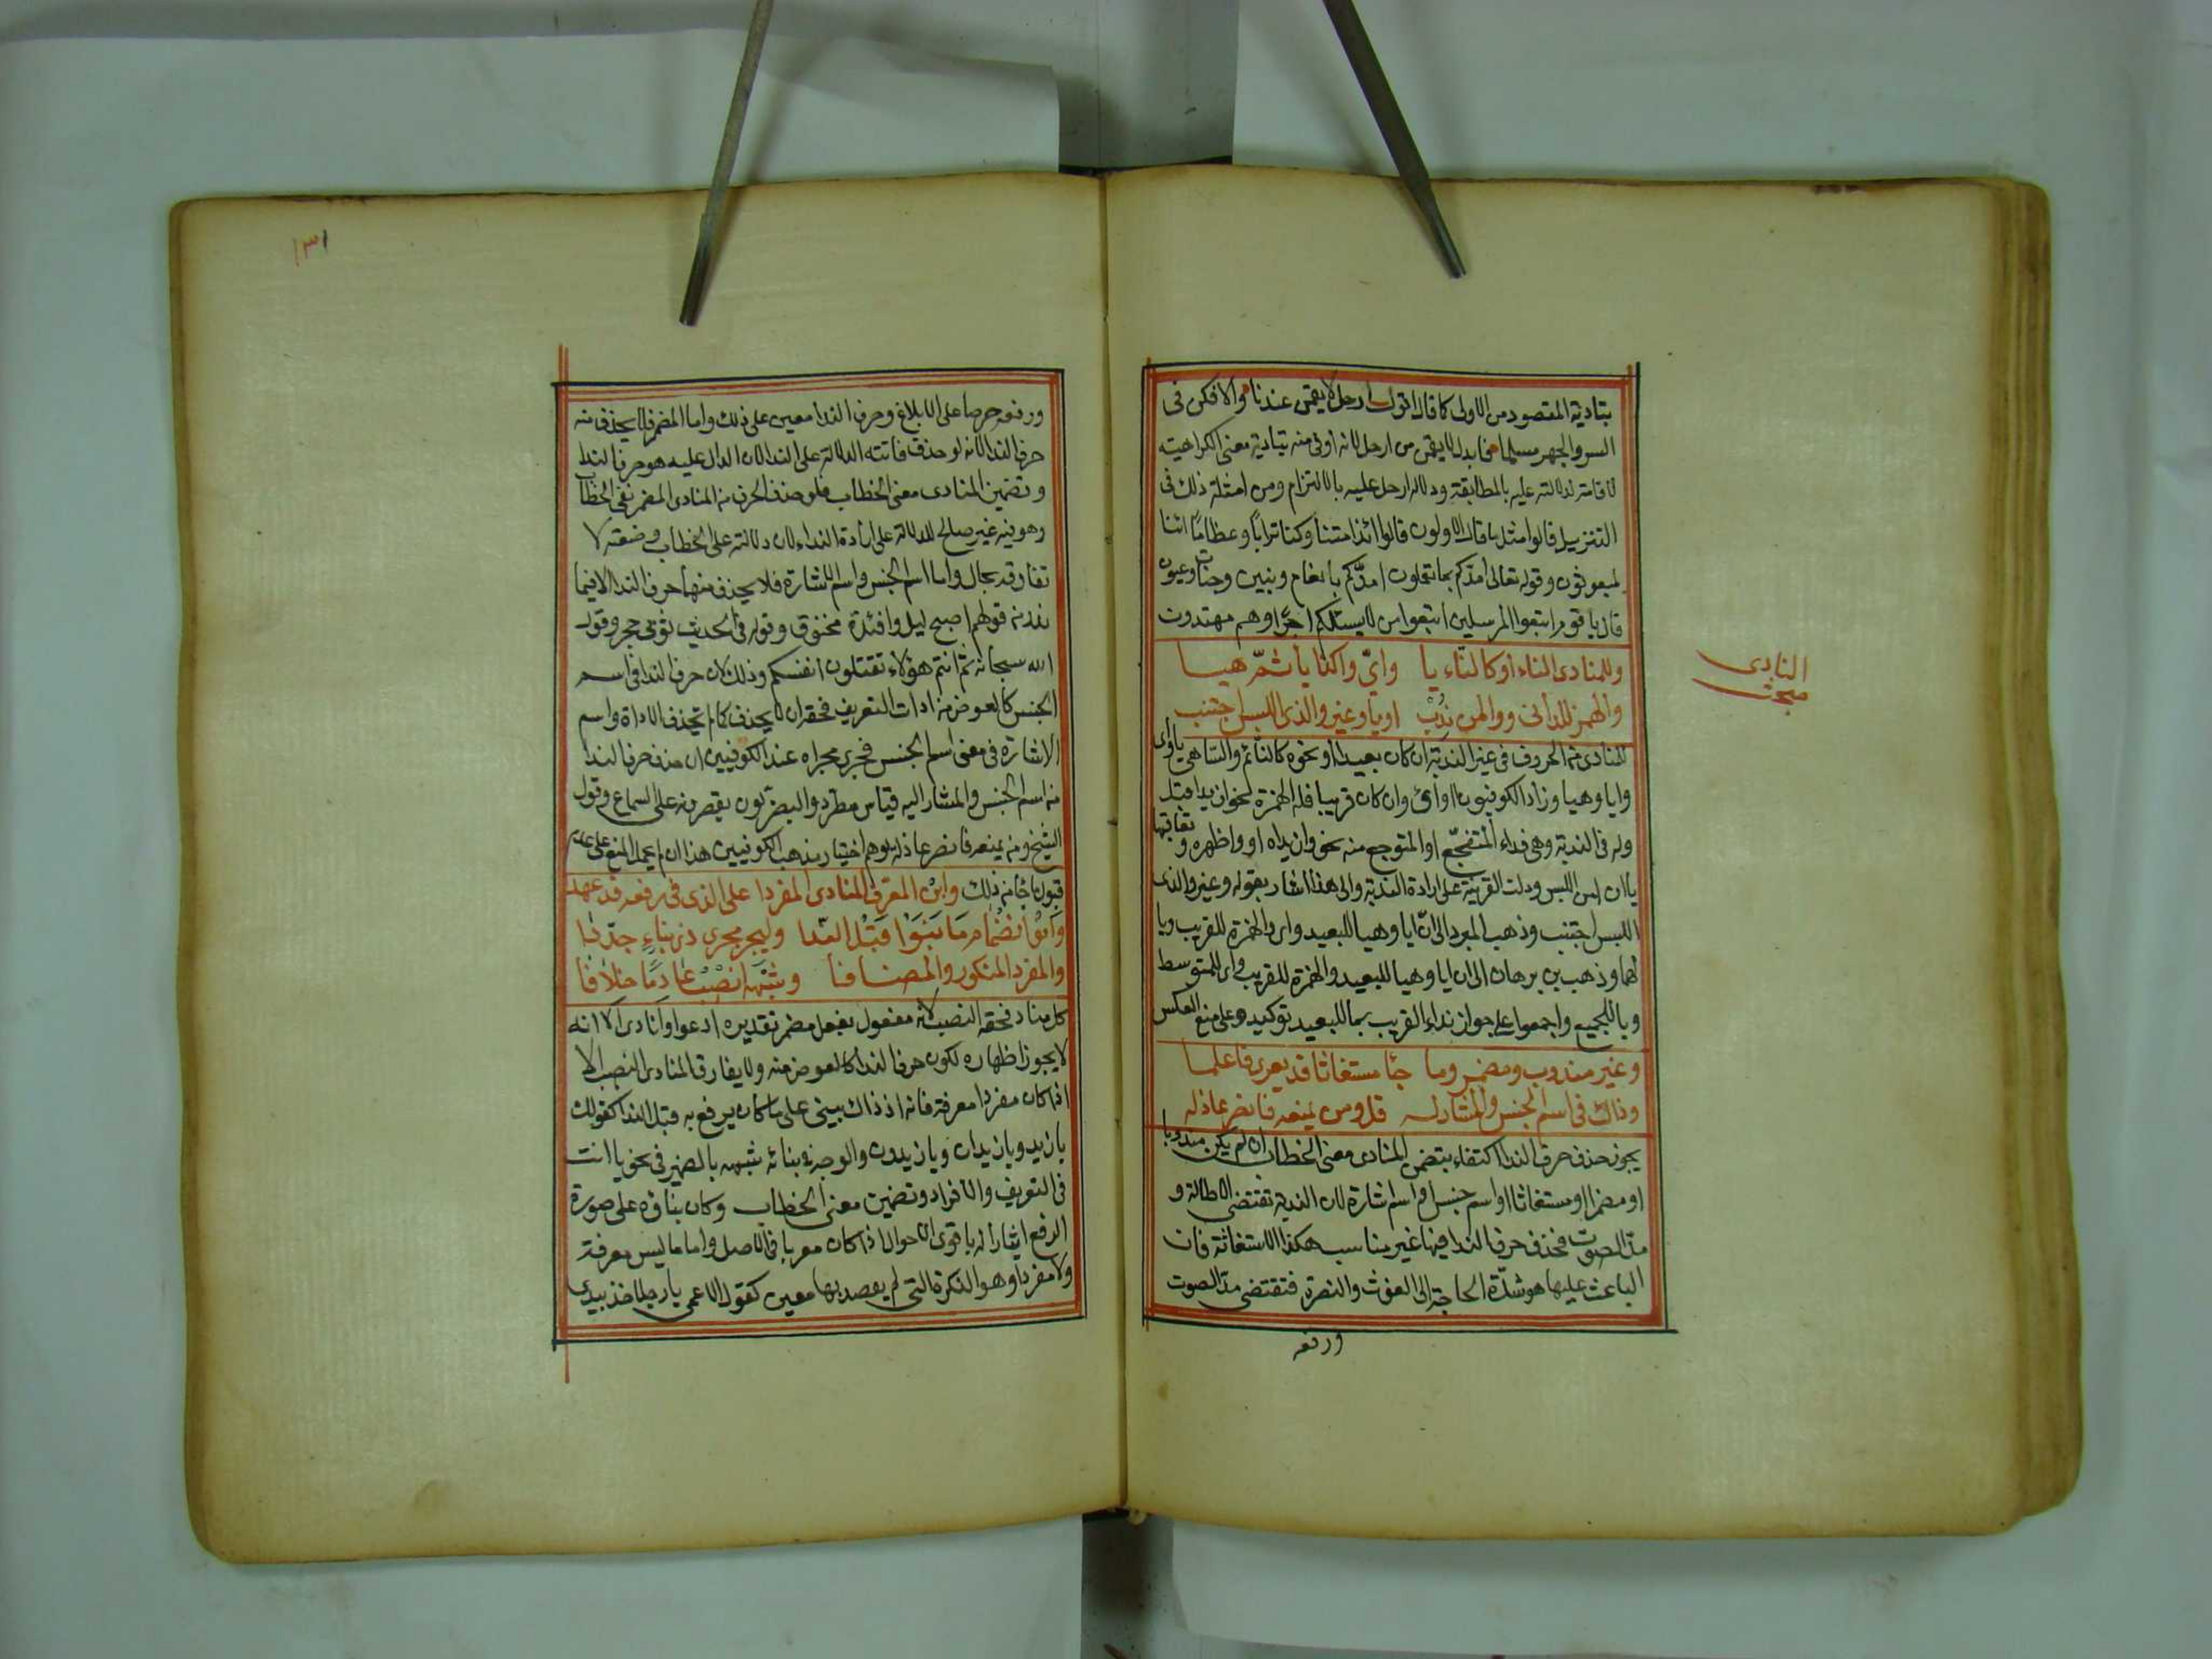 بتادية المقصود من الاولى كما قال اقول ارحل لا تقيمن عندنا والا فكن في
السر والجهر مسلما فابدل لا تقيمن من ارحل لانه اوفى منه بتادية معنى الكراهية
لاقامته لدلالته عليه بالمطابقة ودلالة ارحل عليه بالالتزام ومن امثلة ذلك في
التنزيل قالوا مثل ما قال الاولون قالوا ائذا متنا وكنا ترابًا وعظامًا ائنا
لمبعوثون وقوله تعالى امدّكم بما تعلمون امدّكم بانعام وبنين وجنات وعيون
قال يا قوم اتبعوا المرسلين اتبعوا من لا يسئلكم اجرًا وهم مهتدون
وللمنادى الناء او كالنّاء يا وايّ وا كذا يا ثمّ هيا
المنادى
مبحث
والهمز للدانى ووا لمن نُدِبْ او يا وغير وا لذى اللبس اجتنب
للمنادى من الحروف في غير الندبة ان كان بعيدا او نحوه كالنائم والساهي يا واى
وايا وهيا وزاد الكوفيون ا واى وان كان قريبا فله الهمزة نحو ازيد اقبل
وله في الندبة وهي نداء المتفجّع او المتوجع منه نحو وازيداه او واظهره و تعاقبها
يا ان امن اللبس ودلت القرينة على ارادة الندبة والى هذا اشار بقوله وغير وا لذى
اللبس اجتنب وذهب المبرد الى انّ ايا وهيا للبعيد واى والهمزة للقريب ويا
لهما وذهب بن برهان الى ان ايا وهيا للبعيد والهمزة للقريب واى للمتوسط
ويا للجميع واجمعوا على جواز نداء القريب بما للبعيد توكيدا وعلى منع العكس
وغير مندوب ومضمر وما جا مستغاثا قد يعرى فاعلما
وذاك في اسم الجنس والمشار له قل ومن يمنعه فانصر عاذله
يجوز حذف حرف الندا اكتفاء بتضمن المنادى معنى الخطاب ان لم يكن مندوبا
او مضمرا او مستغاثا او اسم جنس او اسم اشارة لان الندبة تقتضى الاطالة و
مدّ الصوت فحذف حرف الندا فيها غير مناسب هكذا الاستغاثة فان
الباعث عليها هو شدّة الحاجة الى الغوث والنصرة فتقتضى مدّ الصوت
ورفعه
١٣١
ورفعه حرصا على الابلاغ وحرف الندا معين على ذلك واما المضمر فلا يحذف منه
حرف الندا لانه لو حذف فاتته الدلالة على الندا لان الدال عليه هو حرف الندا
وتضمين المنادى معنى الخطاب فلو حذف الحرف من المنادى المضمر بقي الخطاب
وهو فيه غير صالح للدلالة على ارادة النداء لان دلالته على الخطاب وضعية لا
تفارقه بحال واما اسم الجنس واسم الاشارة فلا يحذف منهما حرف الندا الا فيما
ندر من قولهم اصبح ليل وافتد مخنوق وقوله في الحديث ثوبي حجر وقول
الله سبحانه ثم انتم هؤلاء تقتلون انفسكم وذلك لان حرف الندا في اسم
الجنس كالعوض من ادات التعريف فحقه ان لا يحذف كما لم تحذف الاداة واسم
الاشارة في معنى اسم الجنس فجرى مجراه عند الكوفيين ان حذف حرف الندا
من اسم الجنس والمشار اليه قياس مطرد والبصريون يقصرونه على السماع وقول
الشيخ ومن يمنعه فانصر عاذله يوهم اختيار مذهب الكوفيين هذا ان لم يحمل المنع على عدم
قبول ما جا من ذلك وابن المعرّف المنادى المفردا على الذى في رفعه قد عهدا
وانو انضمام ما بنوا قبل الندا وليجر مجرى ذى بناءٍ جدّدا
والمفرد المنكور والمضافا وشبهه انصب عادمًا خلافا
كل منادى فحقه النصب لانه مفعول بفعل مضمر تقديره ادعوا او انادى الا انه
لا يجوز اظهاره لكون حرف الندا كالعوض منه ولا يفارق المنادى النصب الا
اذا كان مفردا معرفة فانه اذ ذاك يبنى على ما كان يرفع به قبل الندا كقولك
يا زيد ويا زيدان ويا زيدون والوجه في بنائه شبهه بالضمير في نحو يا انت
في التعريف والافراد وتضمين معنى الخطاب وكان بناؤه على صورة
الرفع ايثارا له باقوى الاحوال اذا كان معربا في الاصل واما ما ليس معرفة
ولا مفردا وهو النكرة التي لم يقصد بها معين كقول الاعمى يا رجلا خذ بيدى